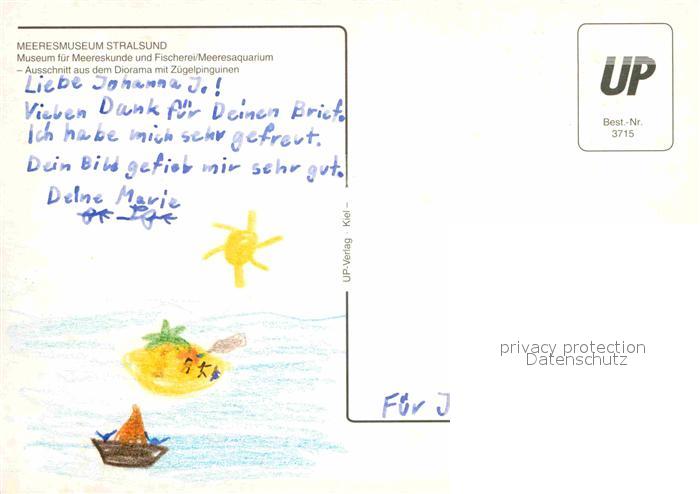 MEERESMUSEUM STRALSUND
Museum für Meereskunde und Fischerei/Meeresaquarium
– Ausschnitt aus dem Diorama mit Zügelpinguinen
Liebe Johanna J.!
Vielen Dank für Deinen Brief.
Ich habe mich sehr gefreut.
Dein Bild gefiel mir sehr gut.
Deine Marie
UP-Verlag · Kiel –
UP
Best.-Nr.
3715
privacy protection
Datenschutz
Für J